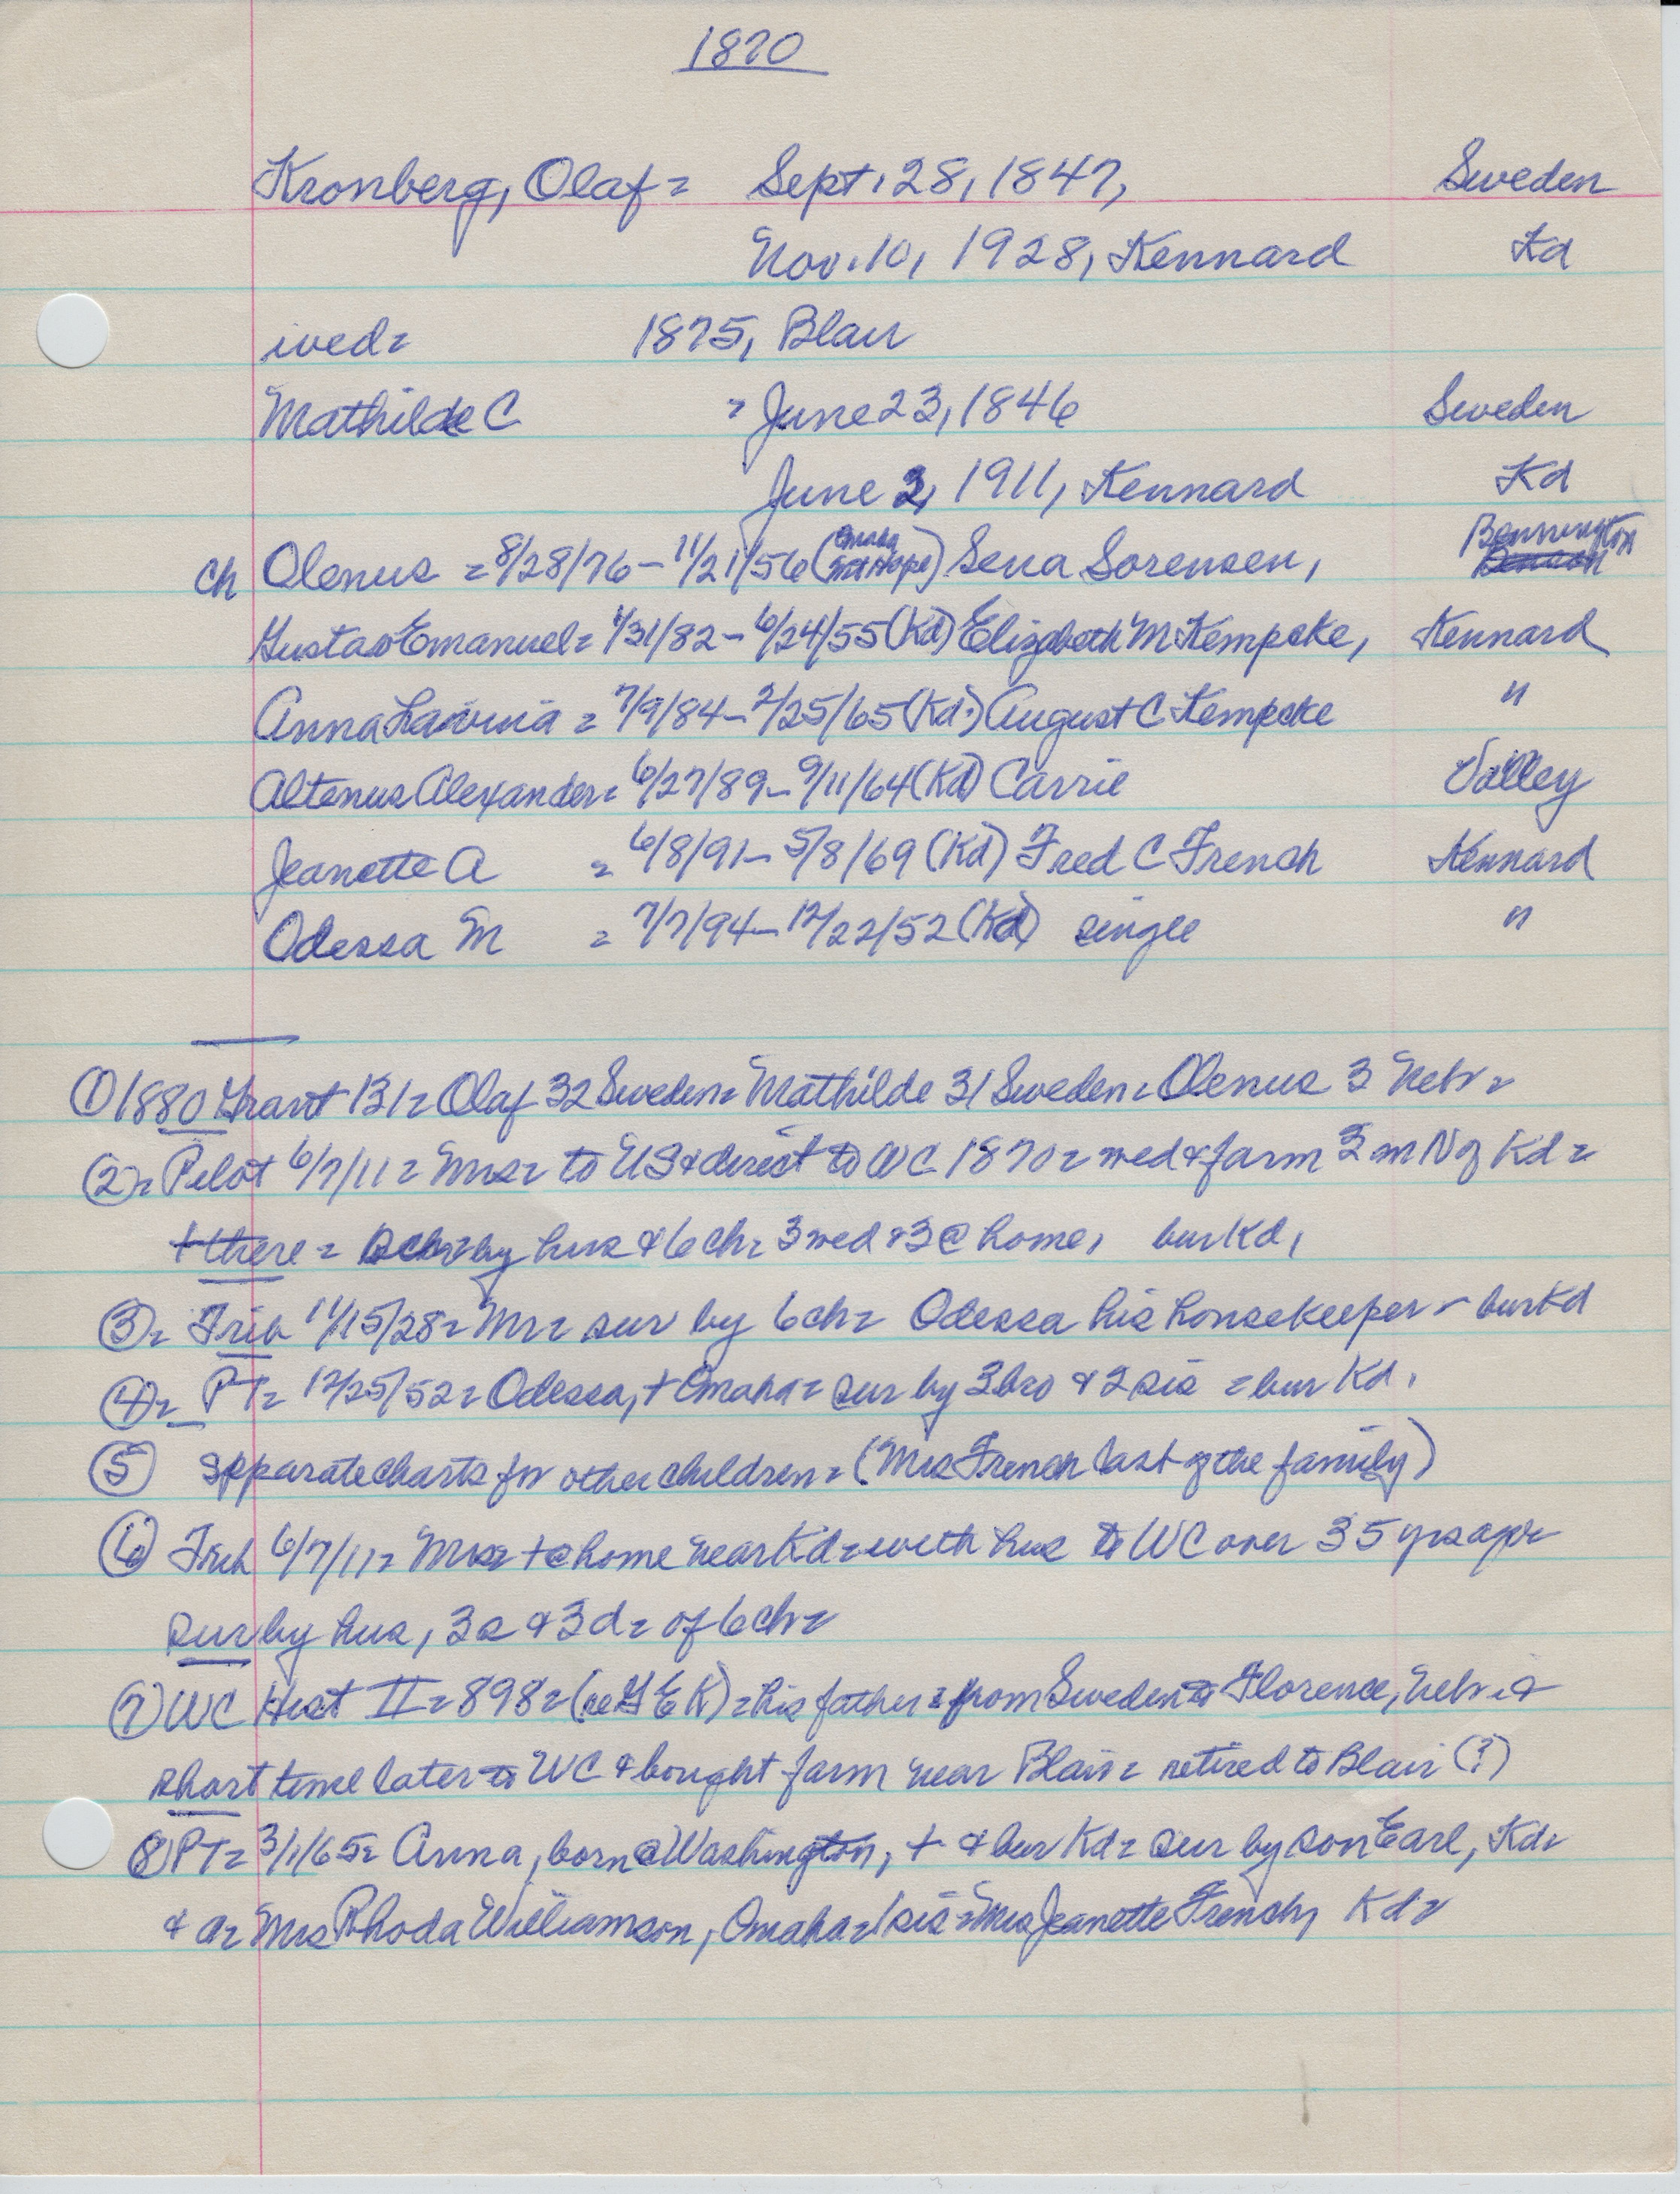 1870
Kronberg, Olaf = Sept. 28, 1847, Sweden
Nov. 10, 1928, Kennard Kd
wed = 1875, Blair
Mathilde C = June 23, 1846 Sweden
June 2, 1911, Kennard Kd
ch Olenus = 8/28/76 - 11/21/56 (Omaha Mt Hope) Sena Sorensen, Bennington
Gustav Emanuel = 1/31/82 - 6/24/55 (Kd) Elizabeth M Kempcke, Kennard
Anna Lavinia = 7/9/84 - 2/25/65 (Kd.) August C Kempcke "
Altenus Alexander = 6/27/89 - 9/11/64 (Kd) Carrie Valley
Jeanette A = 6/8/91 - 5/8/69 (Kd) Fred C French Kennard
Odessa M = 7/7/94 - 12/22/52 (Kd) single "
① 1880 Grant 131 = Olaf 32 Sweden = Mathilde 31 Sweden = Olenus 3 Nebr =
② = Pilot 6/7/11 = Mrs = to US & direct to WC 1870 = wed & farm 3 m N of Kd =
+ there = by hus & 6 ch = 3 wed & 3 @ home, bur Kd,
③ = Trib 11/15/28 = Mr = sur by 6 ch = Odessa his housekeeper - bur Kd
④ = PT = 12/25/52 = Odessa, + Omaha = sur by 3 bro & 2 sis = bur Kd.
⑤ separate charts for other children = (Mrs French last of the family)
⑥ Trib 6/7/11 = Mrs = + @ home near Kd = with hus to WC over 35 yrs ago =
sur by hus, 3 s & 3 d = of 6 ch =
⑦ WC Hist II = 898 = (re G E K) = his father = from Sweden to Florence, Nebr &
short time later to WC & bought farm near Blair = retired to Blair (?)
⑧ PT = 3/1/65 = Anna, born @ Washington, + & bur Kd = sur by son Earl, Kd =
& d = Mrs Rhoda Williamson, Omaha = 1 sis = Mrs Jeanette French, Kd =